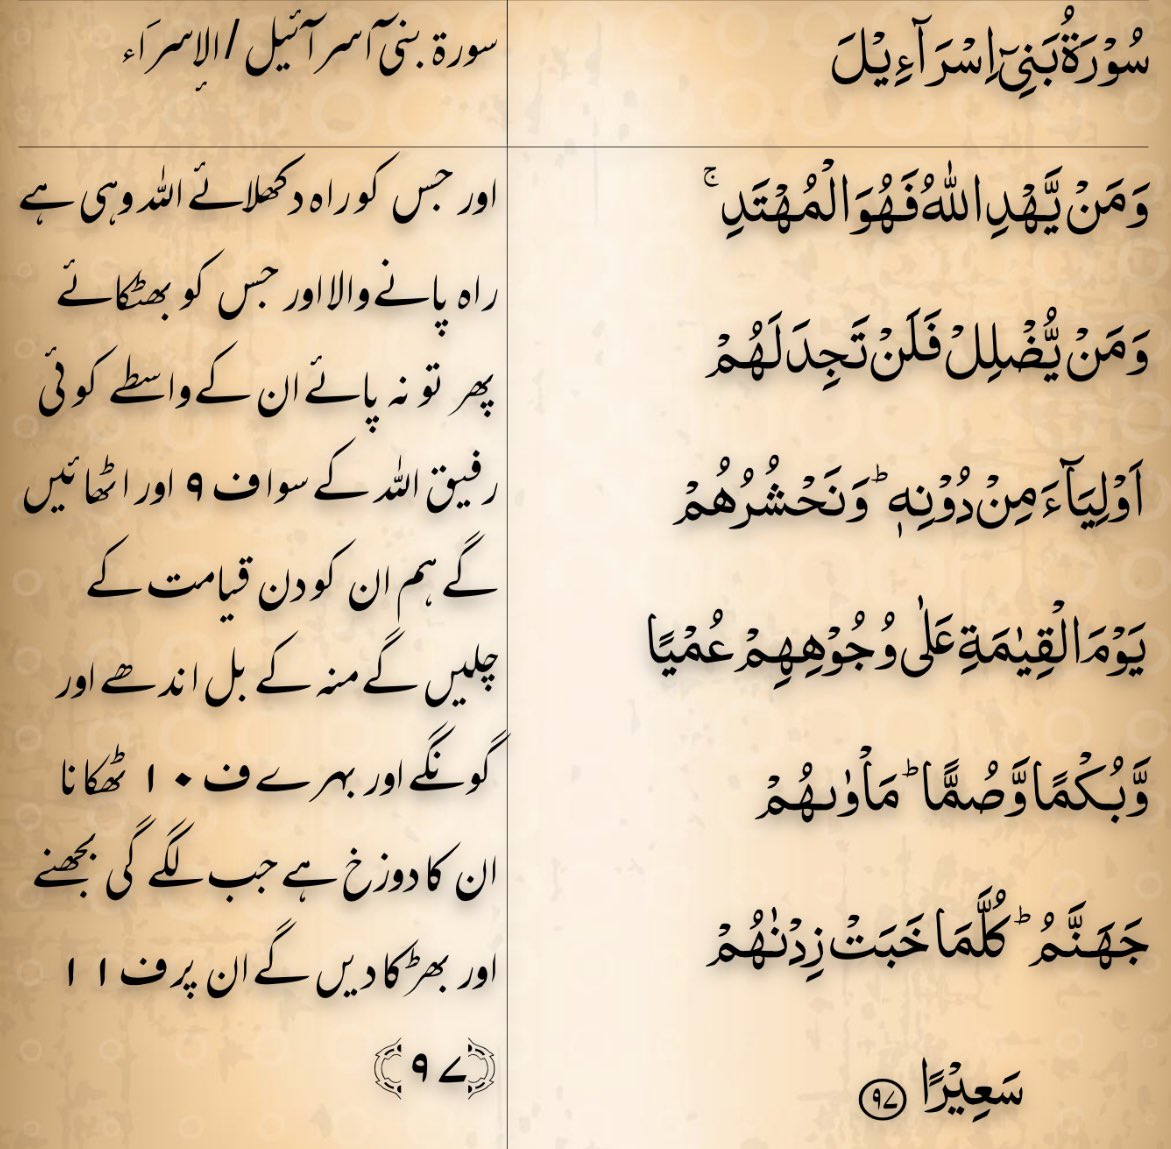 سُوْرَةُ بَنِیْۤ اِسْرَآءِیْلَ
وَمَنْ یَّهْدِ اللّٰهُ فَهُوَ الْمُهْتَدِ ۚ
وَمَنْ یُّضْلِلْ فَلَنْ تَجِدَ لَهُمْ
اَوْلِیَآءَ مِنْ دُوْنِهٖ ؕ وَنَحْشُرُهُمْ
یَوْمَ الْقِیٰمَةِ عَلٰی وُجُوْهِهِمْ عُمْیًا
وَّبُكْمًا وَّصُمًّا ؕ مَاْوٰىهُمْ
جَهَنَّمُ ؕ كُلَّمَا خَبَتْ زِدْنٰهُمْ
سَعِیْرًا ۹۷
سورۃ بنیٓ اسرآئیل / الإسرَاء
اور جس کو راہ دکھلائے اللہ وہی ہے
راہ پانے والا اور جس کو بھٹکائے
پھر تو نہ پائے ان کے واسطے کوئی
رفیق اللہ کے سوا ف ۹ اور اٹھائیں
گے ہم ان کو دن قیامت کے
چلیں گے منہ کے بل اندھے اور
گونگے اور بہرے ف ۱۰ ٹھکانا
ان کا دوزخ ہے جب لگے گی بجھنے
اور بھڑکا دیں گے ان پر ف ۱۱
﴿۹۷﴾